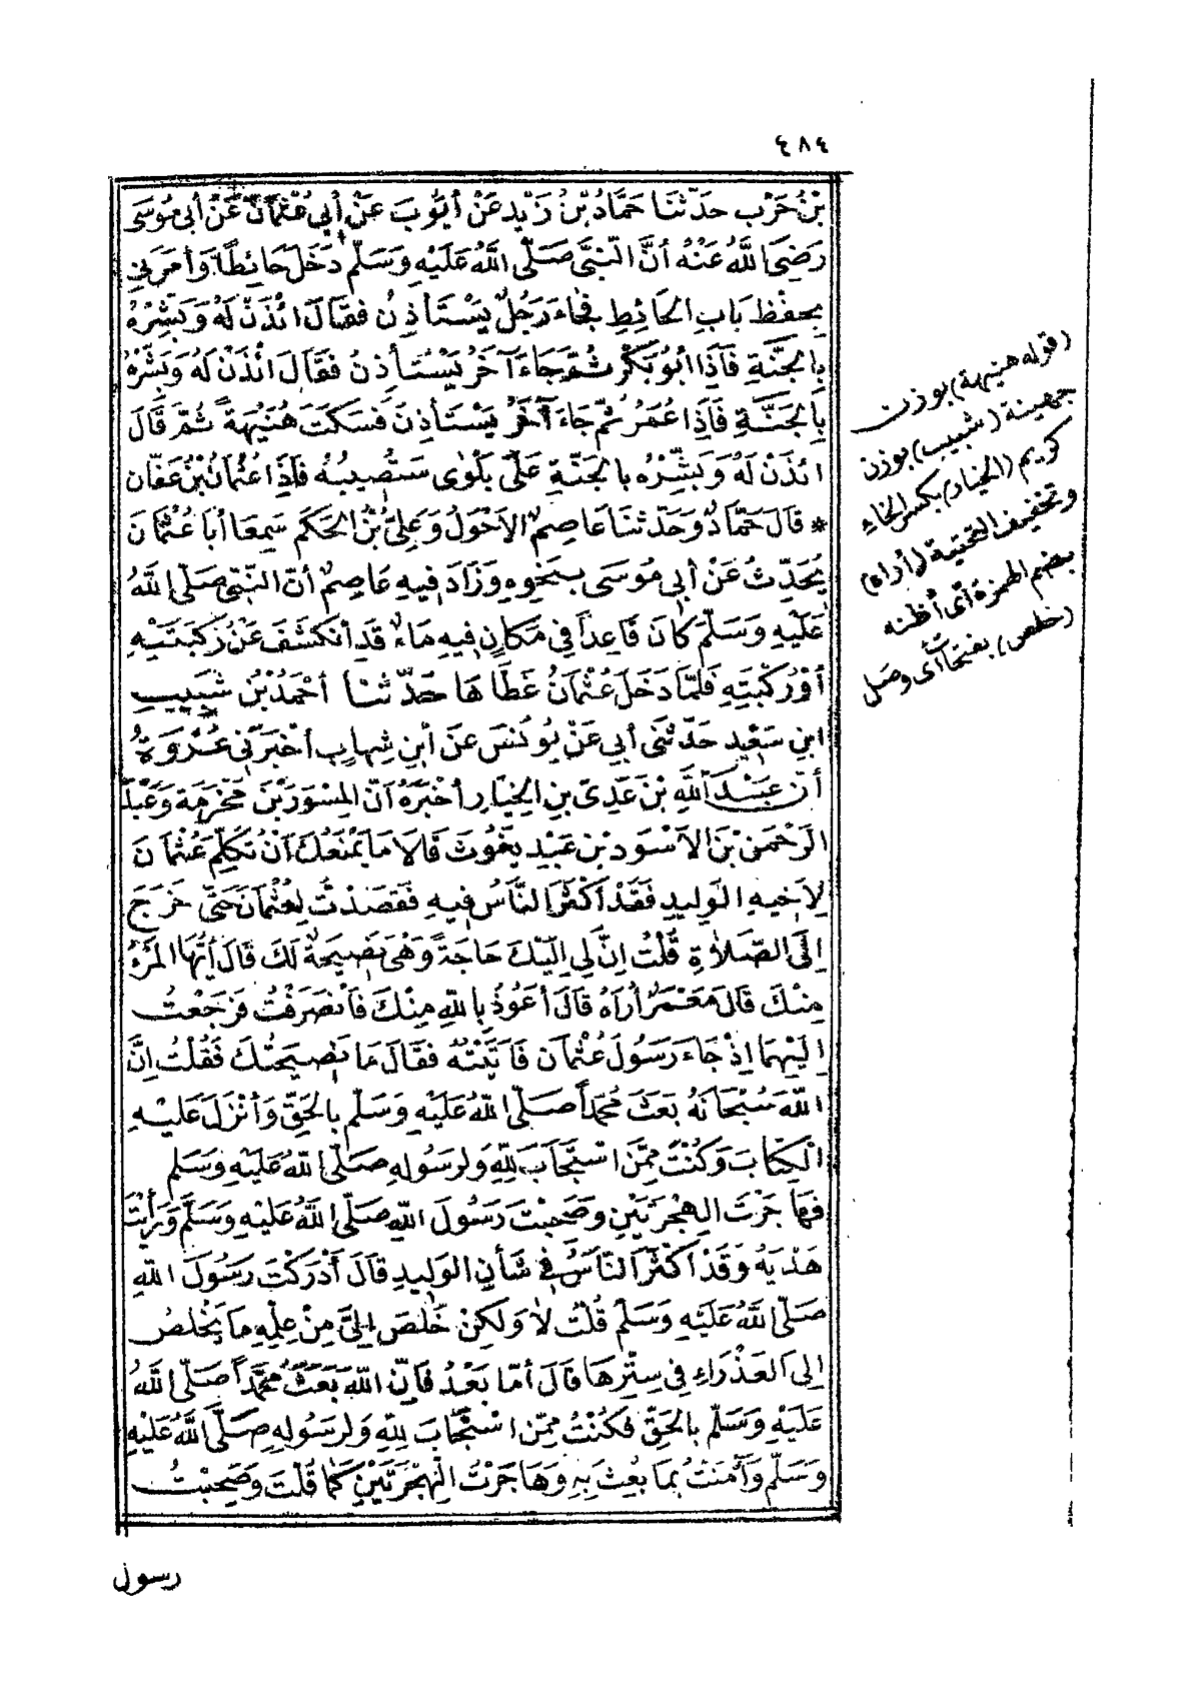 ٤٨٤
بْنُ حَرْبٍ حَدَّثَنَا حَمَّادُ بْنُ زَيْدٍ عَنْ أَيُّوبَ عَنْ أَبِي عُثْمَانَ عَنْ أَبِي مُوسَى
رَضِيَ اللَّهُ عَنْهُ أَنَّ النَّبِيَّ صَلَّى اللَّهُ عَلَيْهِ وَسَلَّمَ دَخَلَ حَائِطًا وَأَمَرَنِي
بِحِفْظِ بَابِ الحَائِطِ فَجَاءَ رَجُلٌ يَسْتَأْذِنُ فَقَالَ ائْذَنْ لَهُ وَبَشِّرْهُ
بِالجَنَّةِ فَإِذَا أَبُو بَكْرٍ ثُمَّ جَاءَ آخَرُ يَسْتَأْذِنُ فَقَالَ ائْذَنْ لَهُ وَبَشِّرْهُ
بِالجَنَّةِ فَإِذَا عُمَرُ ثُمَّ جَاءَ آخَرُ يَسْتَأْذِنُ فَسَكَتَ هُنَيْهَةً ثُمَّ قَالَ
ائْذَنْ لَهُ وَبَشِّرْهُ بِالجَنَّةِ عَلَى بَلْوَى سَتُصِيبُهُ فَإِذَا عُثْمَانُ بْنُ عَفَّانَ
* قَالَ حَمَّادٌ وَحَدَّثَنَا عَاصِمٌ الأَحْوَلُ وَعَلِيُّ بْنُ الحَكَمِ سَمِعَا أَبَا عُثْمَانَ
يُحَدِّثُ عَنْ أَبِي مُوسَى بِنَحْوِهِ وَزَادَ فِيهِ عَاصِمٌ أَنَّ النَّبِيَّ صَلَّى اللَّهُ
عَلَيْهِ وَسَلَّمَ كَانَ قَاعِدًا فِي مَكَانٍ فِيهِ مَاءٌ قَدِ انْكَشَفَ عَنْ رُكْبَتَيْهِ
أَوْ رُكْبَتِهِ فَلَمَّا دَخَلَ عُثْمَانُ غَطَّاهَا حَدَّثَنَا أَحْمَدُ بْنُ شَبِيبِ
ابْنِ سَعِيدٍ حَدَّثَنِي أَبِي عَنْ يُونُسَ عَنْ ابْنِ شِهَابٍ أَخْبَرَنِي عُرْوَةُ
أَنَّ عُبَيْدَ اللَّهِ بْنَ عَدِيِّ بْنِ الخِيَارِ أَخْبَرَهُ أَنَّ المِسْوَرَ بْنَ مَخْرَمَةَ وَعَبْدَ
الرَّحْمَنِ بْنَ الأَسْوَدِ بْنِ عَبْدِ يَغُوثَ قَالاَ مَا يَمْنَعُكَ أَنْ تُكَلِّمَ عُثْمَانَ
لِأَخِيهِ الوَلِيدِ فَقَدْ أَكْثَرَ النَّاسُ فِيهِ فَقَصَدْتُ لِعُثْمَانَ حَتَّى خَرَجَ
إِلَى الصَّلاَةِ قُلْتُ إِنَّ لِي إِلَيْكَ حَاجَةً وَهِيَ نَصِيحَةٌ لَكَ قَالَ أَيُّهَا المَرْءُ
مِنْكَ قَالَ مَعْمَرٌ أُرَاهُ قَالَ أَعُوذُ بِاللَّهِ مِنْكَ فَانْصَرَفْتُ فَرَجَعْتُ
إِلَيْهِمَا إِذْ جَاءَ رَسُولُ عُثْمَانَ فَأَتَيْتُهُ فَقَالَ مَا نَصِيحَتُكَ فَقُلْتُ إِنَّ
اللَّهَ سُبْحَانَهُ بَعَثَ مُحَمَّدًا صَلَّى اللَّهُ عَلَيْهِ وَسَلَّمَ بِالحَقِّ وَأَنْزَلَ عَلَيْهِ
الْكِتَابَ وَكُنْتَ مِمَّنِ اسْتَجَابَ لِلَّهِ وَلِرَسُولِهِ صَلَّى اللَّهُ عَلَيْهِ وَسَلَّمَ
فَهَاجَرْتَ الهِجْرَتَيْنِ وَصَحِبْتَ رَسُولَ اللَّهِ صَلَّى اللَّهُ عَلَيْهِ وَسَلَّمَ وَرَأَيْتَ
هَدْيَهُ وَقَدْ أَكْثَرَ النَّاسُ فِي شَأْنِ الوَلِيدِ قَالَ أَدْرَكْتَ رَسُولَ اللَّهِ
صَلَّى اللَّهُ عَلَيْهِ وَسَلَّمَ قُلْتُ لاَ وَلَكِنْ خَلَصَ إِلَيَّ مِنْ عِلْمِهِ مَا يَخْلُصُ
إِلَى العَذْرَاءِ فِي سِتْرِهَا قَالَ أَمَّا بَعْدُ فَإِنَّ اللَّهَ بَعَثَ مُحَمَّدًا صَلَّى اللَّهُ
عَلَيْهِ وَسَلَّمَ بِالحَقِّ فَكُنْتُ مِمَّنِ اسْتَجَابَ لِلَّهِ وَلِرَسُولِهِ صَلَّى اللَّهُ عَلَيْهِ
وَسَلَّمَ وَآمَنْتُ بِمَا بُعِثَ بِهِ وَهَاجَرْتُ الْهِجْرَتَيْنِ كَمَا قُلْتَ وَصَحِبْتُ
رسول
(قوله هنيهة) بوزن
جهينة (شبيب) بوزن
كريم (الخيار) بكسر الخاء
وتخفيف التحتية (أراه)
بضم الهمزة أى أظنه
(خلص) بفتحات أى وصل